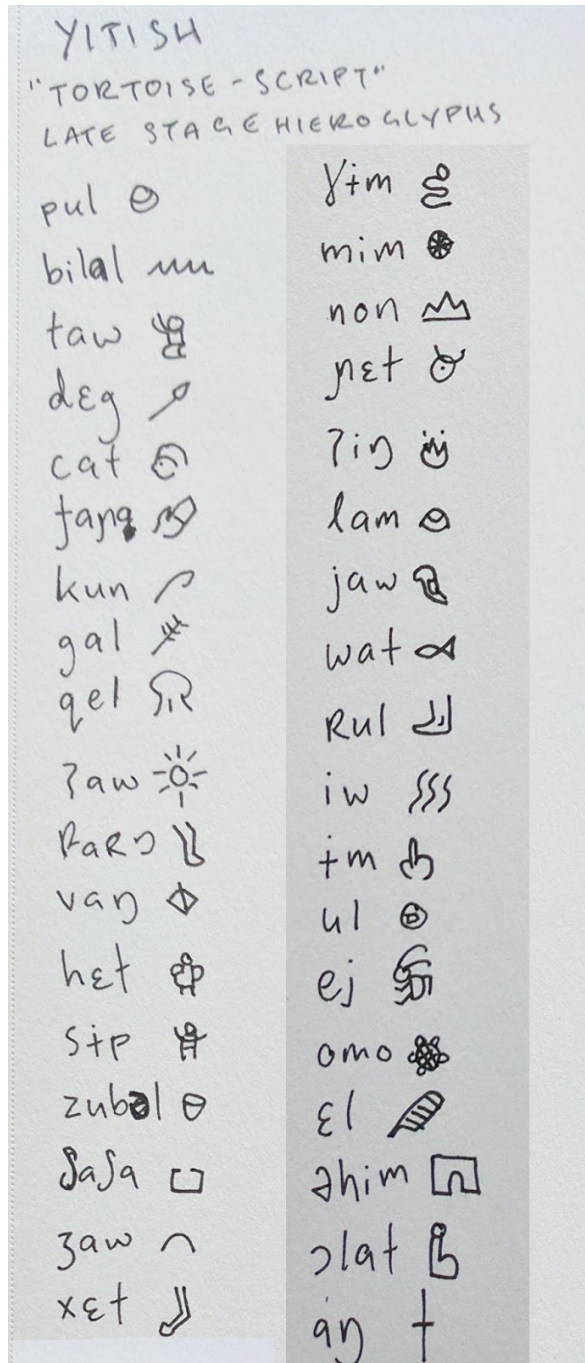 YITISH
"TORTOISE-SCRIPT"
LATE STAGE HIEROGLYPHS
pul
bilal
taw
dɛg
cat
kun
gal
qel
ʔaw
vaŋ
hɛt
sɨp
ʃaʃa
ʒaw
xɛt
ɣɨm
mim
non
ɲɛt
ʔiŋ
lam
jaw
wat
ʀul
iw
ɨm
ul
ej
omo
ɛl
əhim
ɔlat
aŋ